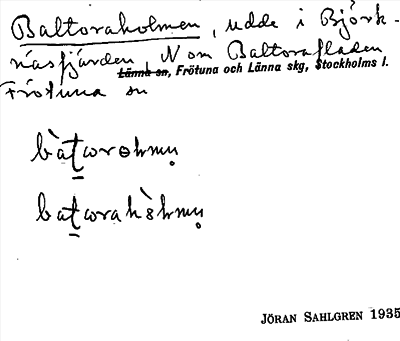 Baltoraholmen, udde i Björk-
näsfjärden, N om Baltorafladen
Länna sn, Frötuna och Länna skg, Stockholms l.
Frötuna sn
JÖRAN SAHLGREN 1935